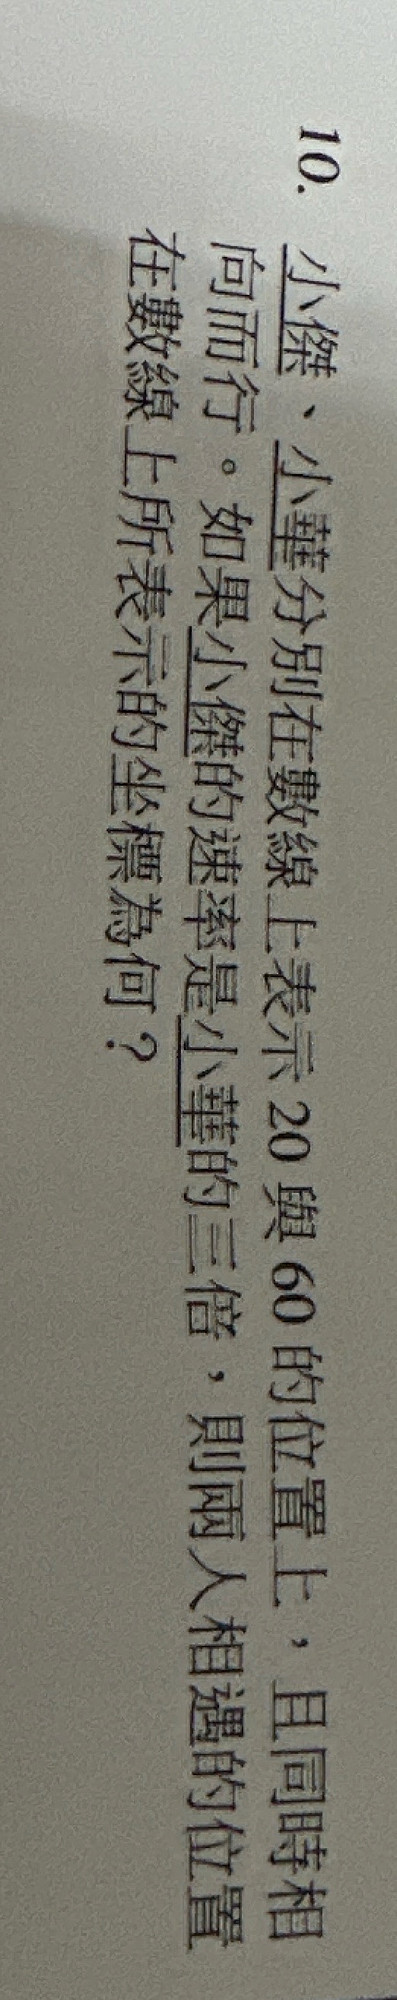 10. 小傑、小華分別在數線上表示 20 與 60 的位置上，且同時相
向而行。如果小傑的速率是小華的三倍，則兩人相遇的位置
在數線上所表示的坐標為何？